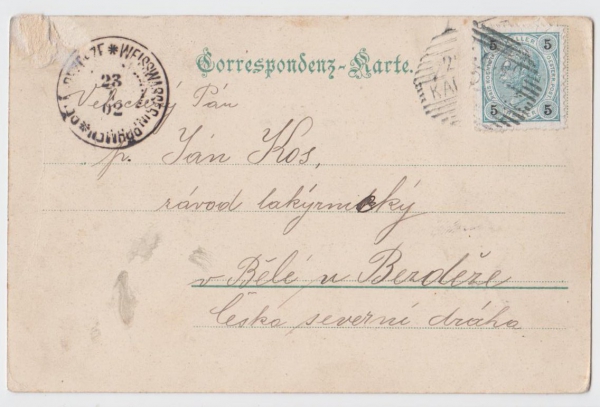 Correspondenz-Karte.
5 5
HELLER
5 5
WEISSWASSER IN BÖHMEN
23
02
KAR
Velectěný Pán
p. Ján Kos,
závod lakýrnický
v Bělé u Bezděže
Česka severní dráha